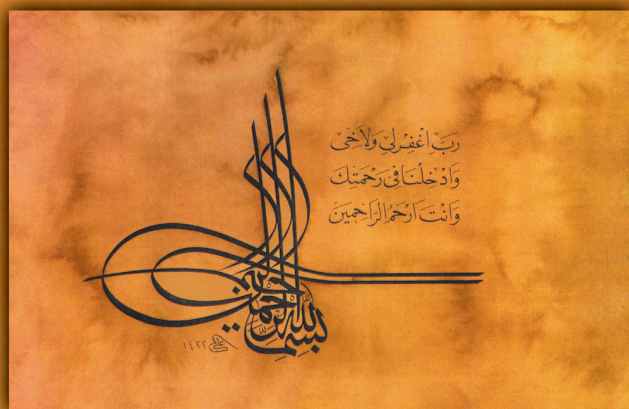 رَبِّ اغْفِرْلِي وَلِأَخِي
وَادْخِلْنَا فِي رَحْمَتِكَ
وَانْتَ ارْحَمُ الرَّاحِمِينَ
بسم الله الرحمن الرحيم
علي ١٤٢٢